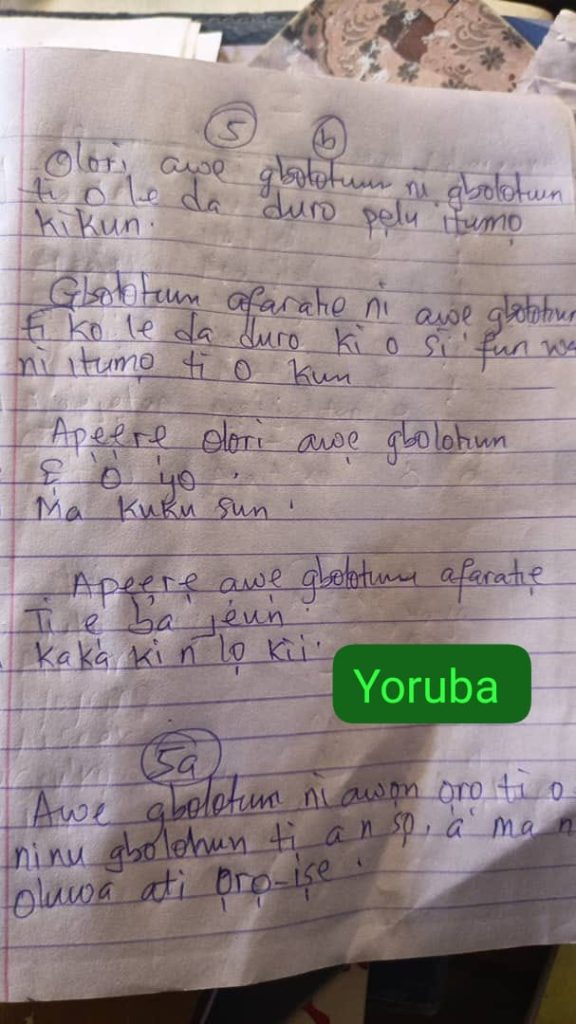 5 b
Olori awe gbolohun ni gbolohun
ti o le da duro pẹlu itumọ
kikun.
Gbolohun afarahẹ ni awẹ gbolohun
ti ko le da duro ki o si fun wa
ni itumọ ti o kun
Apẹẹrẹ olori awẹ gbolohun
Ẹ ò yo.
Ma kuku sun.
Apẹẹrẹ awẹ gbolohun afarahẹ
Ti ẹ bá jẹun.
Kàkà kí n lọ kíi.
Yoruba
5a
Awe gbolohun ni awọn ọrọ ti o
ninu gbolohun ti a n sọ, a ma n
oluwa ati ọrọ-iṣe.